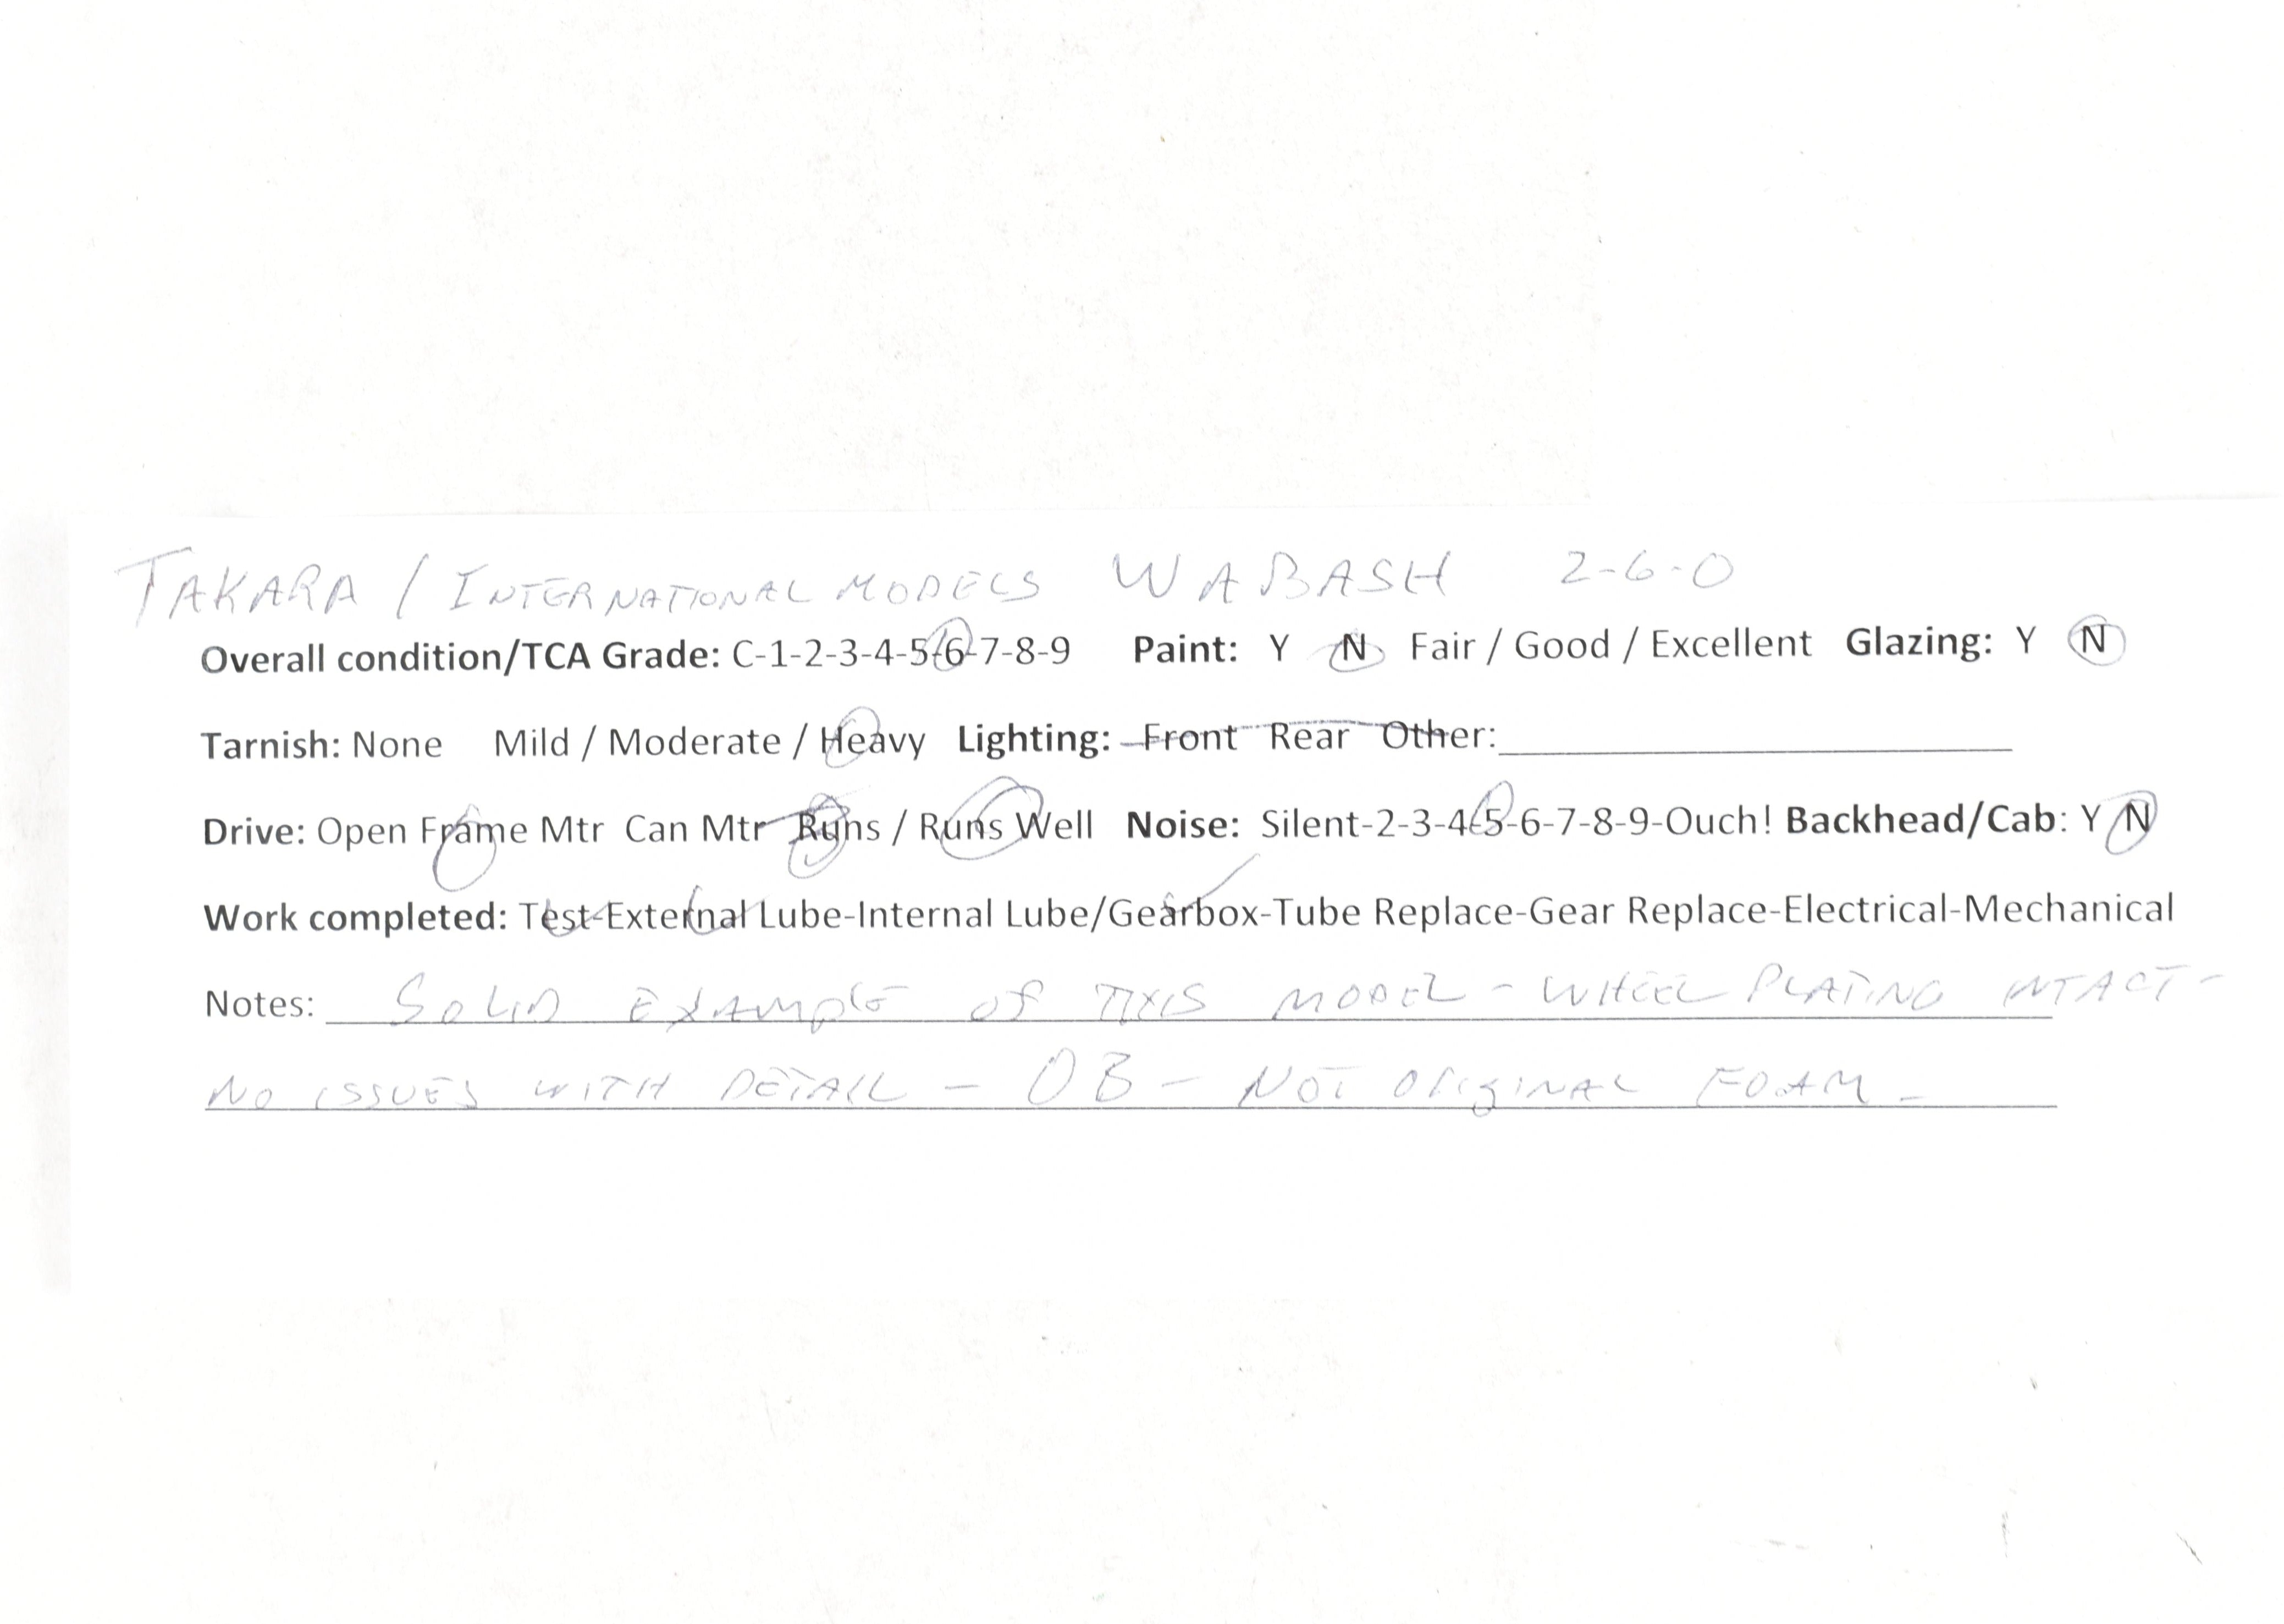 TAKARA / INTERNATIONAL MODELS WABASH 2-6-0
Overall condition/TCA Grade: C-1-2-3-4-5-6-7-8-9 Paint: Y N Fair / Good / Excellent Glazing: Y N
Tarnish: None Mild / Moderate / Heavy Lighting: Front Rear Other:
Drive: Open Frame Mtr Can Mtr Runs / Runs Well Noise: Silent-2-3-4-5-6-7-8-9-Ouch! Backhead/Cab: Y N
Work completed: Test-External Lube-Internal Lube/Gearbox-Tube Replace-Gear Replace-Electrical-Mechanical
Notes: SOLID EXAMPLE OF THIS MODEL - WHEEL PLATING INTACT -
NO ISSUES WITH DETAIL - OB - NOT ORIGINAL FOAM -